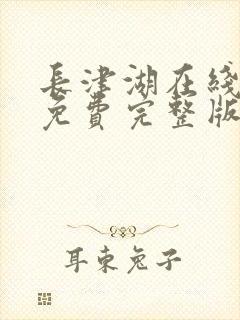 長津湖在綫
免費完整版
耳東兔子